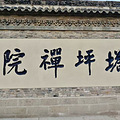 塔坪禪院